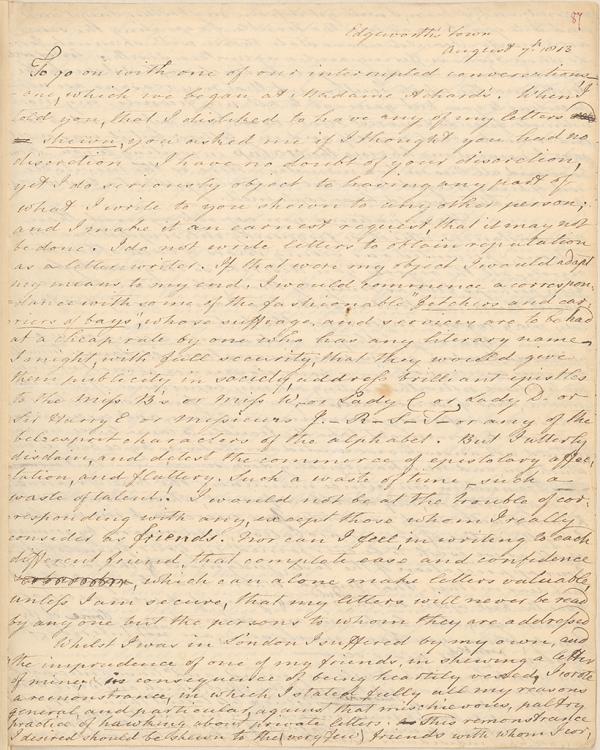 87
Edgeworth's Town
August 7th. 1813
To go on with one of our interrupted conversations—
one, which we began at Madame Achard's. When I
told you, that I disliked to have any of my letters
shewn, you asked me if I thought you had no
discretion — I have no doubt of your discretion,
yet I do seriously object to having any part of
what I write to you shewn to any other person;
and I make it an earnest request, that it may not
be done. I do not write letters to obtain reputation
as a letter writer. If that were my object I would adapt
my means to my end. I would commence a correspon-
-dance with some of the fashionable "fetchers and car-
riers of bays", whose suffrage, and services are to be had
at a cheap rate by one who has any literary name—
I might, with full security, that they would give
them publicity in society, address brilliant epistles
to the Miss B's or Miss W— or Lady C or Lady D— or
Sir Harry E or Messieurs J— R— S— T— or any of the
bel esprit characters of the alphabet. But I utterly
disdain, and detest the commerce of epistolary affec-
tation, and flattery. Such a waste of time — such a
waste of talent! I would not be at the trouble of cor-
responding with any, except those whom I really
consider as friends. Nor can I feel, in writing to each
different friend, that complete ease and confidence
, which can alone make letters valuable,
unless I am secure, that my letters will never be read
by any one but the persons to whom they are addressed
Whilst I was in London I suffered by my own, and
the imprudence of one of my friends, in shewing a letter
of mine; in consequence of being heartily vexed, I wrote
a remonstrance, in which I stated fully all my reasons
general and particular, against that mischievous, paltry
practice of hawking about private letters. This remonstrance
I desired should be shewn to the (very few) friends with whom I cor,